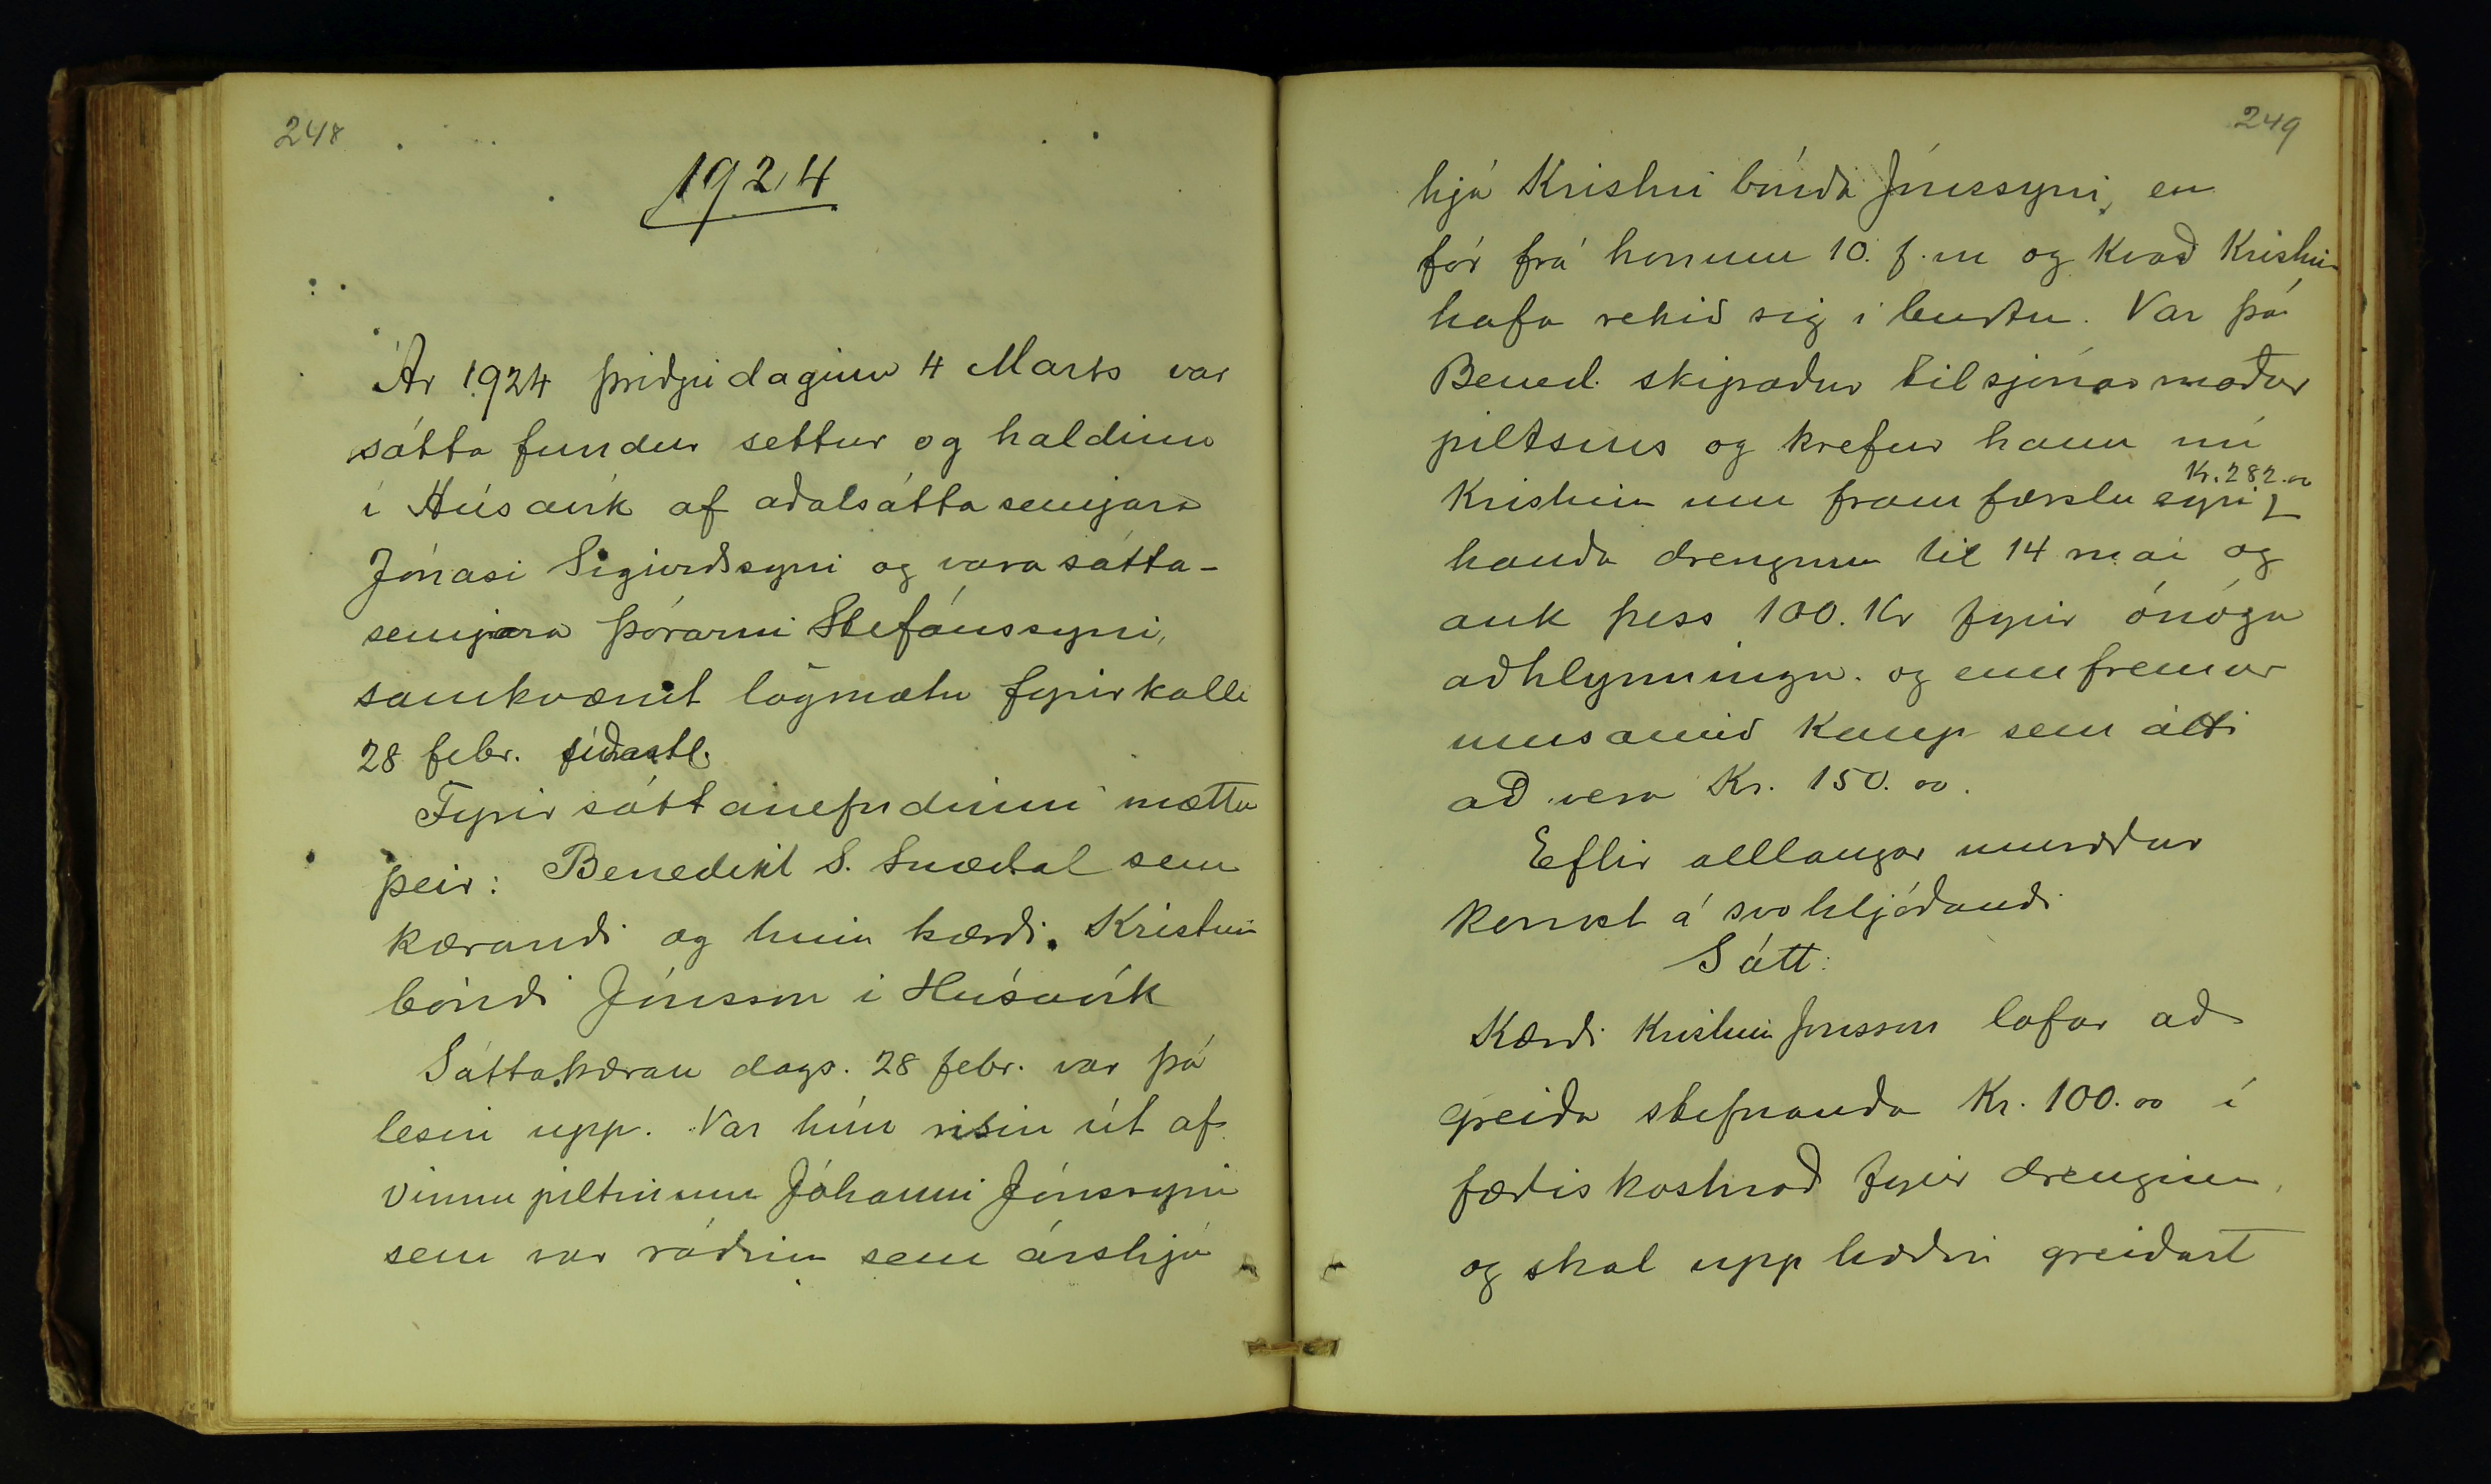 248
1924
Ár 1924 þriðjudaginn 4 Marts var
sátta fundur settur og haldinn
í Húsavík af aðalsáttasemjara
Jónasi Sigurðssyni og vara sátta-
semjara Þórarni Stefánssyni,
samkvæmt lögmætu fyrirkalli
28 febr. síðastl.
Fyrir sáttanefndinni mættu
þeir: Benedikt S. Snædal sem
kærandi og hinn kærði. Kristinn
bóndi Jónsson í Húsavík
Sáttakæran dags. 28 febr. var þá
lesin upp. Var hún risin út af
vinnupiltinum Jóhanni Jónssyni
sem var ráðinn sem árshjú
249
hjá Kristni bónda Jónssyni, en
fór frá honum 10. f.m og kvað Kristinn
hafa rekið sig í burtu. Var þá
Bened. skipaður tilsjónarmaður
piltsins og krefur hann nú
Kr. 282.00
Kristinn um framfærslueyri
handa drengnum til 14 mai og
auk þess 100. Kr fyrir ónóga
aðhlynningu. og ennfremur
umsamið kaup sem átti
að vera Kr. 150.00.
Eftir alllangar umræður
komst á svohljóðandi
Sátt:
Kærði Kristinn Jónsson lofar að
greiða stefnanda Kr. 100.00 í
fæðiskostnað fyrir drenginn,
og skal upphæðin greiðast